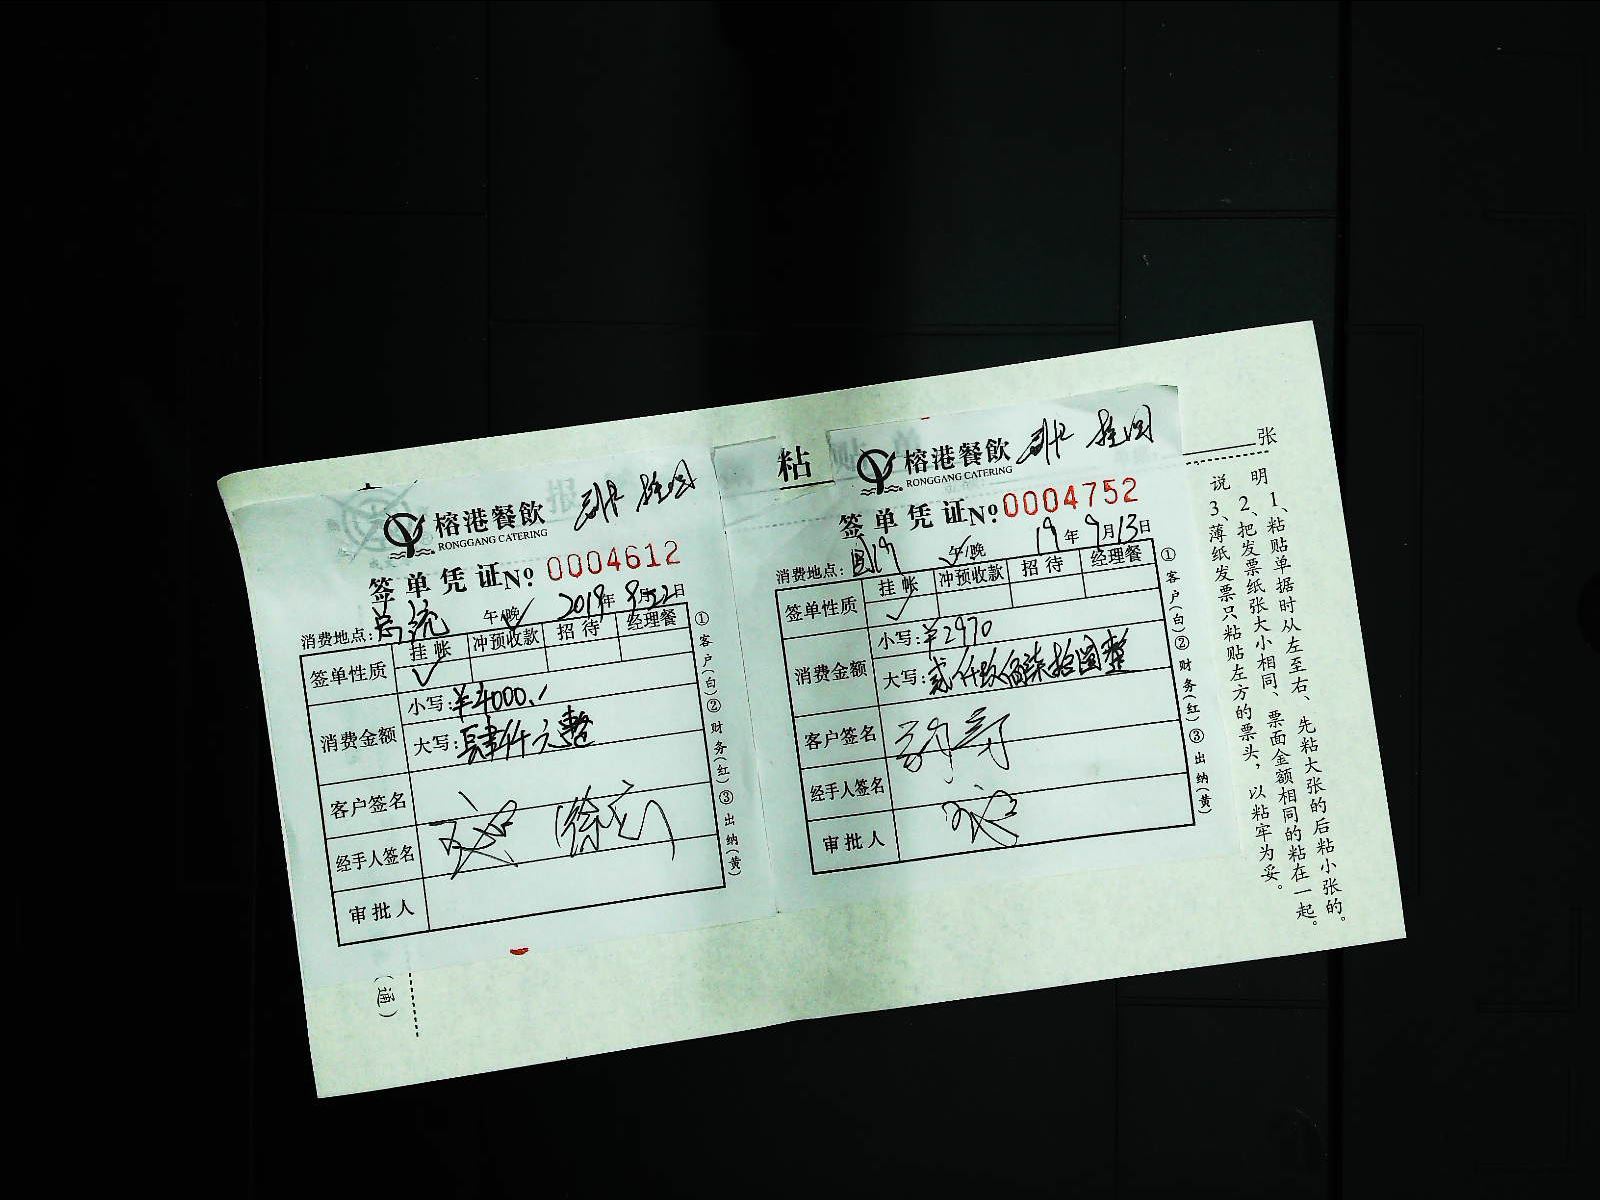 榕港餐飲
RONGGANG CATERING
签单凭证№ 0004612
消费地点: 总统 午/晚 2019年9月22日
签单性质 挂帐 冲预收款 招待 经理餐
消费金额 小写:¥4000.
大写:肆仟元整
客户签名
经手人签名
审批人
①客户(白)②财务(红)③出纳(黄)
粘
榕港餐飲
RONGGANG CATERING
签单凭证№ 0004752
消费地点: 午/晚 19年9月13日
签单性质 挂帐 冲预收款 招待 经理餐
消费金额 小写:¥2970
大写:贰仟玖佰柒拾圆整
客户签名
经手人签名
审批人
①客户(白)②财务(红)③出纳(黄)
张
说明
1、粘贴单据时从左至右、先粘大张的后粘小张的。
2、把发票纸张大小相同、票面金额相同的粘在一起。
3、薄纸发票只粘贴左方的票头,以粘牢为妥。
(通)